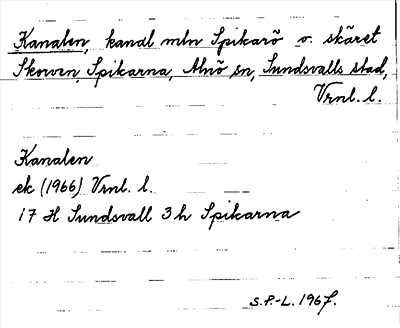 Kanalen, kandl mln Spikarö o. skäret
Skorven, Spikarna, Alnö sn, Sundsvalls stad,
Vrnl. l.
Kanalen
ek (1966) Vrnl. l.
17 H Sundsvall 3 h Spikarna
S.P.-L. 1967.